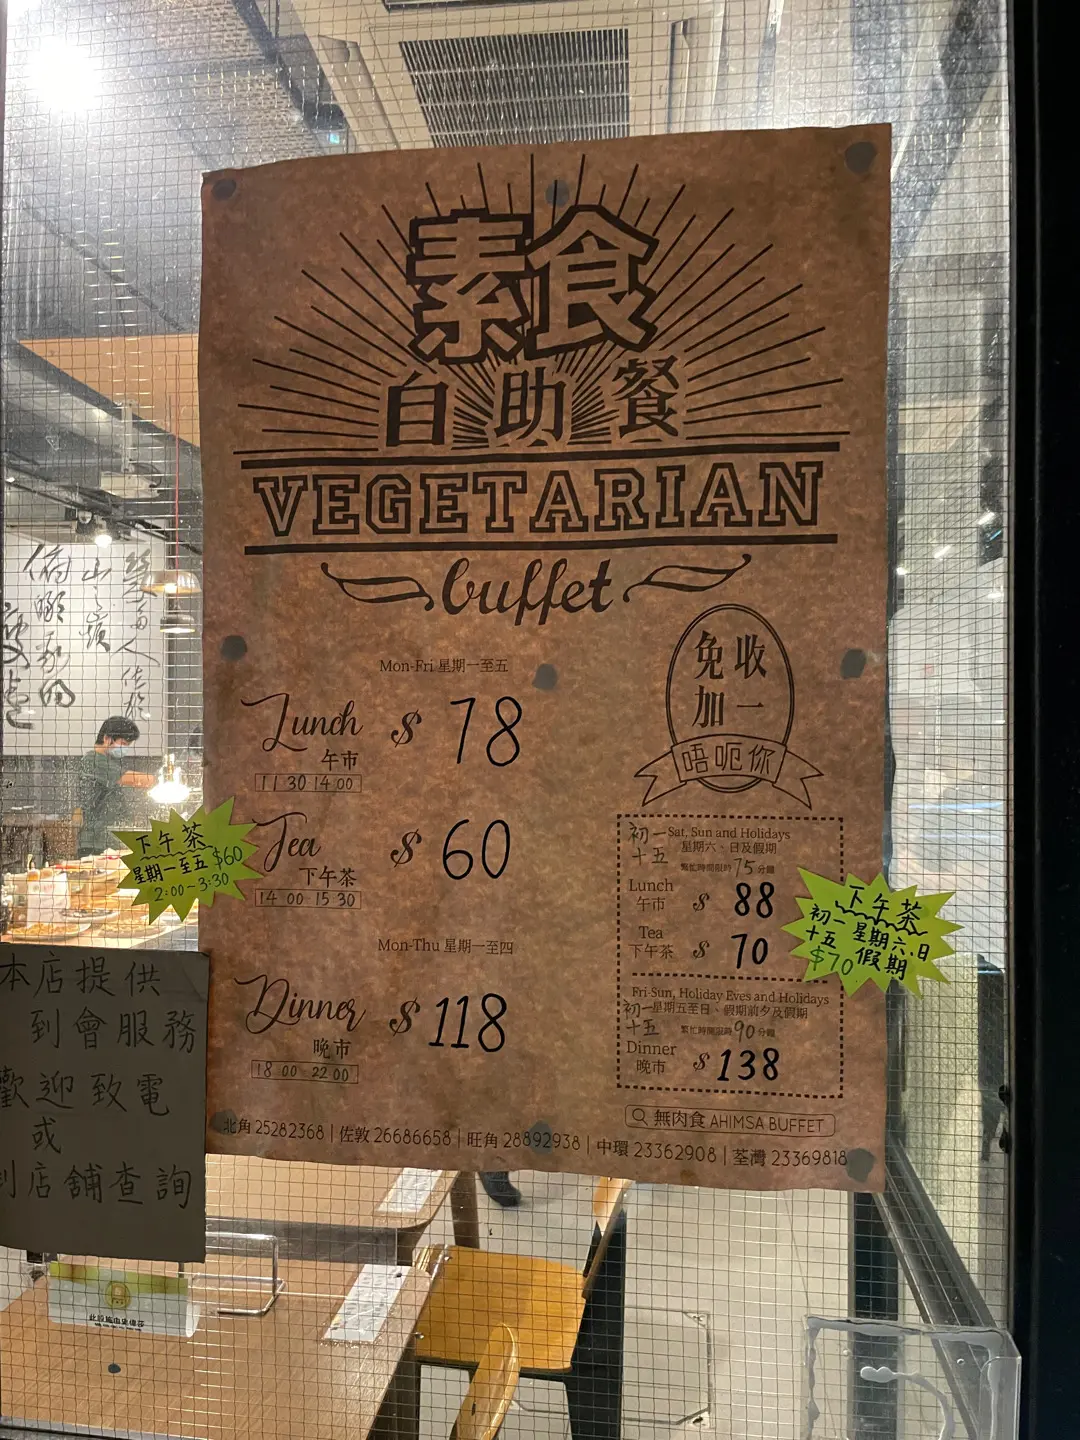 素食
自助餐
VEGETARIAN
buffet
Mon-Fri 星期一至五
Lunch $ 78
午市
11 30 14 00
Tea $ 60
下午茶
14 00 15 30
Mon-Thu 星期一至四
Dinner $ 118
晚市
18 00 22 00
免收
加一
唔呃你
初一 Sat, Sun and Holidays
十五 星期六、日及假期
繁忙時間限時 75 分鐘
Lunch
午市 $ 88
Tea
下午茶 $ 70
Fri-Sun, Holiday Eves and Holidays
初一 星期五至日、假期前夕及假期
十五 繁忙時間限時 90 分鐘
Dinner
晚市 $ 138
無肉食 AHIMSA BUFFET
北角 25282368 | 佐敦 26686658 | 旺角 28892938 | 中環 23362908 | 荃灣 23369818
下午茶
星期一至五 $60
2:00~3:30
下午茶
初一 星期六、日
十五 假期
$70
本店提供
到會服務
歡迎致電
或
到店舖查詢